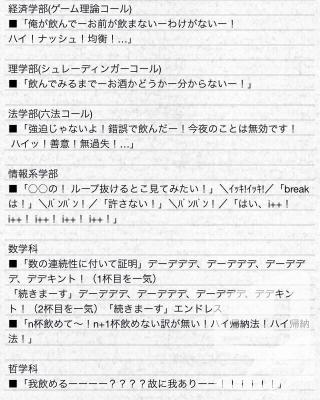 経済学部(ゲーム理論コール)
■「俺が飲んでーお前が飲まないーわけがないー！
ハイ！ナッシュ！均衡！…」
理学部(シュレーディンガーコール)
■「飲んでみるまでーお酒かどうかー分からないー！」
法学部(六法コール)
■「強迫じゃないよ！錯誤で飲んだー！今夜のことは無効です！
ハイッ！善意！無過失！…」
情報系学部
■「○○の！ ループ抜けるとこ見てみたい！」＼ｲｯｷ!ｲｯｷ!／「break
は！」＼ﾊﾞﾝﾊﾞﾝ！／「許さない！」＼ﾊﾞﾝﾊﾞﾝ！／「はい、i++！
i++！ i++！ i++！ i++！」
数学科
■「数の連続性に付いて証明」デーデデデ、デーデデデ、デーデデ
デ、デデキント！（1杯目を一気）
「続きまーす」デーデデデ、デーデデデ、デーデデデ、デデキン
ト！（2杯目を一気）「続きまーす」エンドレス
■「n杯飲めて〜！n+1杯飲めない訳が無い！ハイ帰納法！ハイ帰納
法！」
哲学科
■「我飲めるーーーー？？？？故に我ありーー！！！！！」